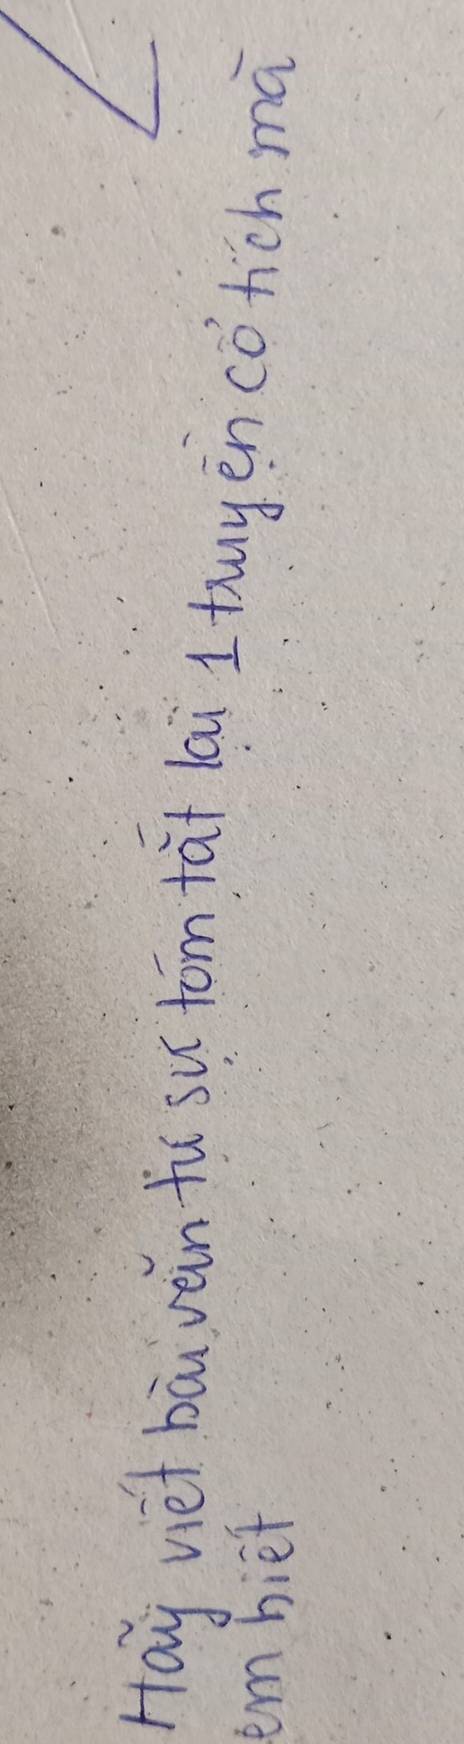 Hãy viết bài văn tự sự tóm tắt lại 1 truyện cổ tích mà
em biết